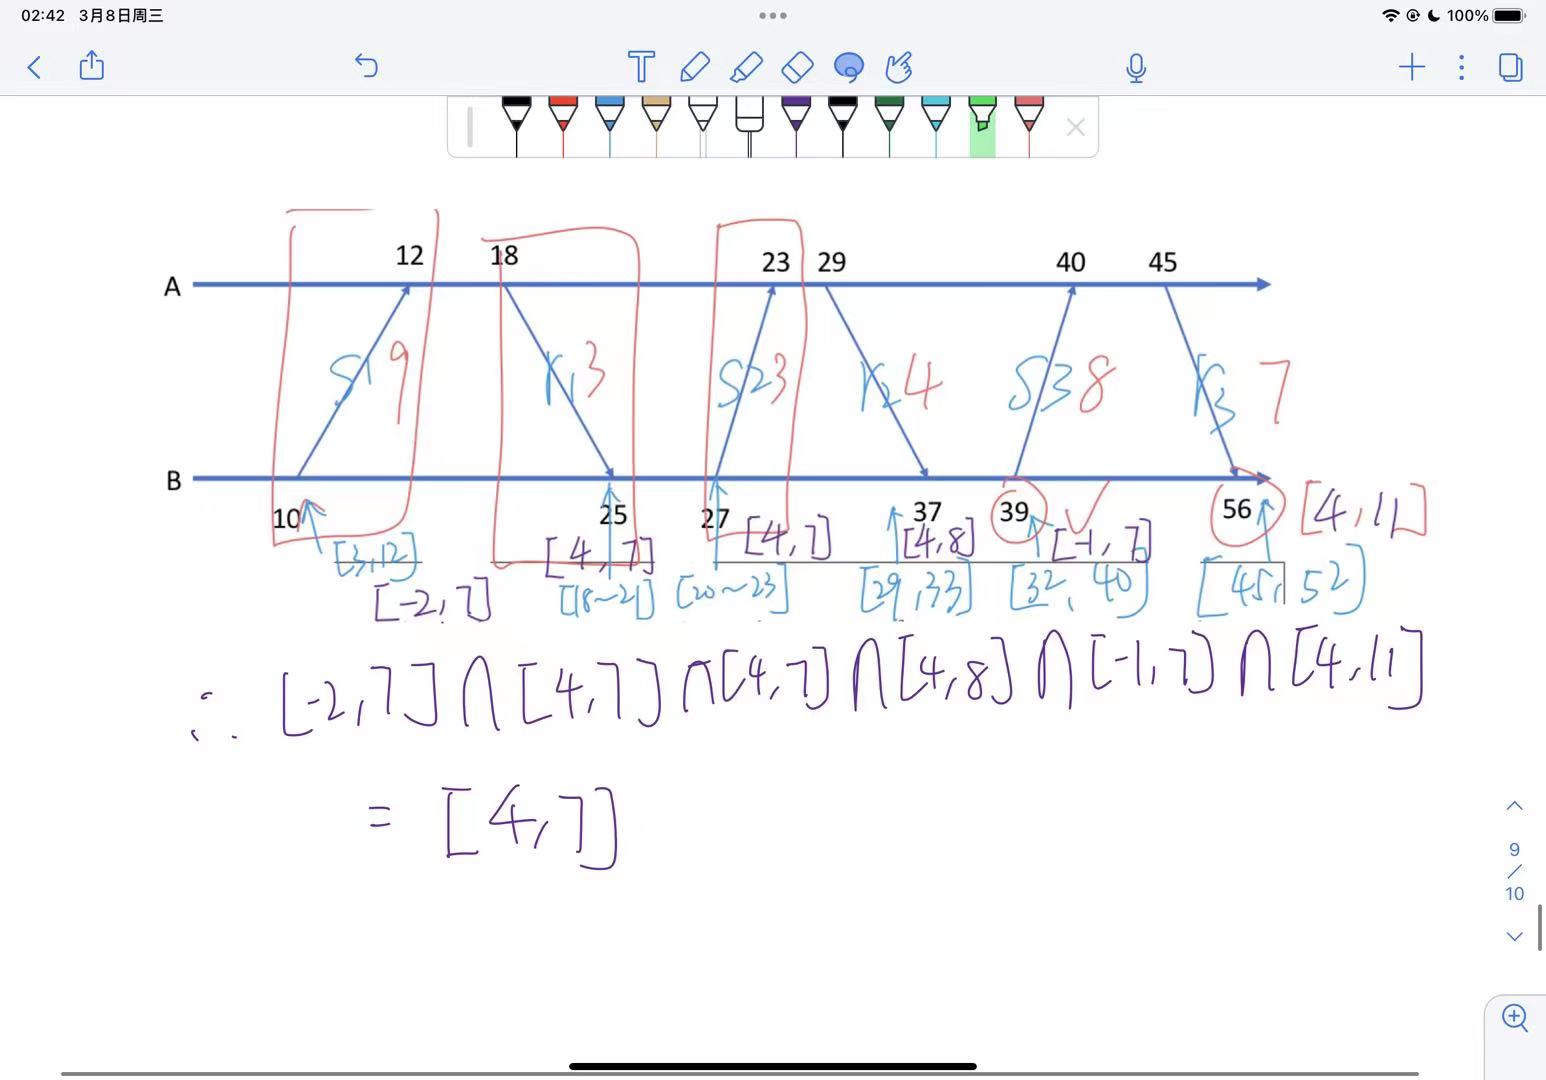 02:42 3月8日周三
100%
12 18 23 29 40 45
A
S1 9 r1 3 S2 3 r2 4 S3 8 r3 7
B
10 25 27 37 39 56 [4,11]
[3,12] [4,7] [4,7] [4,8] [-1,7]
[-2,7] [18~21] [20~23] [29,33] [32,40] [45,52]
∴ [-2,7]∩[4,7]∩[4,7]∩[4,8]∩[-1,7]∩[4,11]
= [4,7]
9
/
10